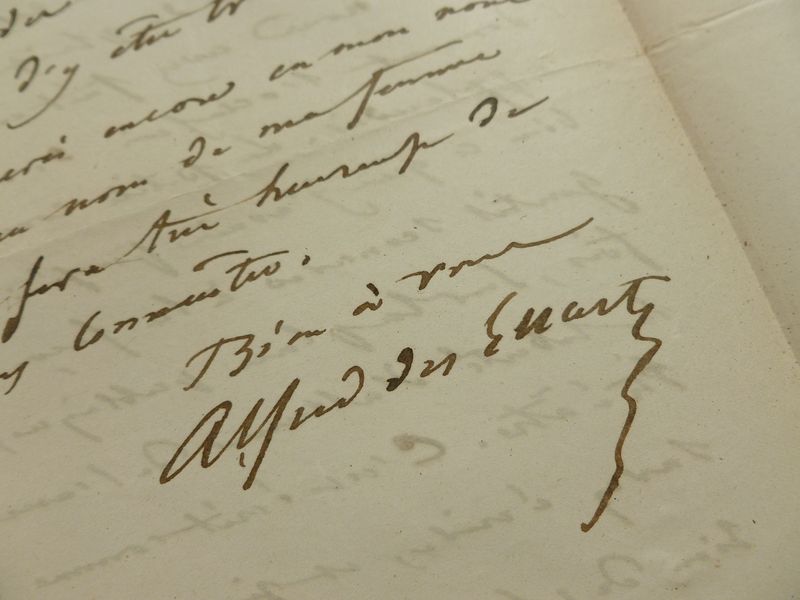 d'y être
encore en mon nom
nom de ma femme
sera très heureuse de
connaître.
Bien à vous
Alfred des Essarts